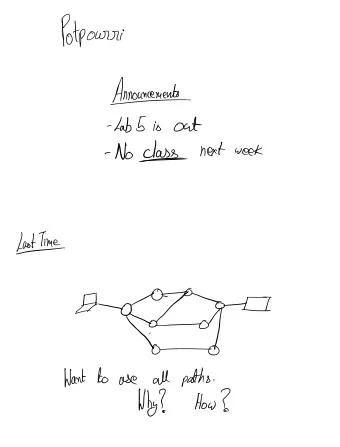 Potpourri
Announcements
- Lab 5 is out
- No class next week
Last Time
Want to use all paths.
Why? How?